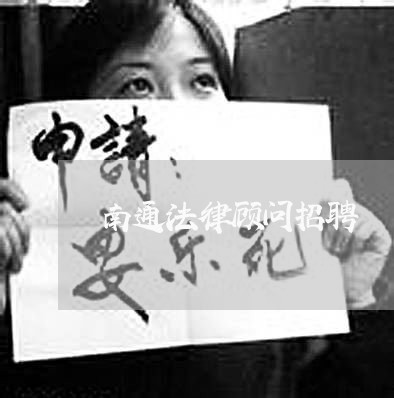 申請：
南通法律顾问招聘
安乐死